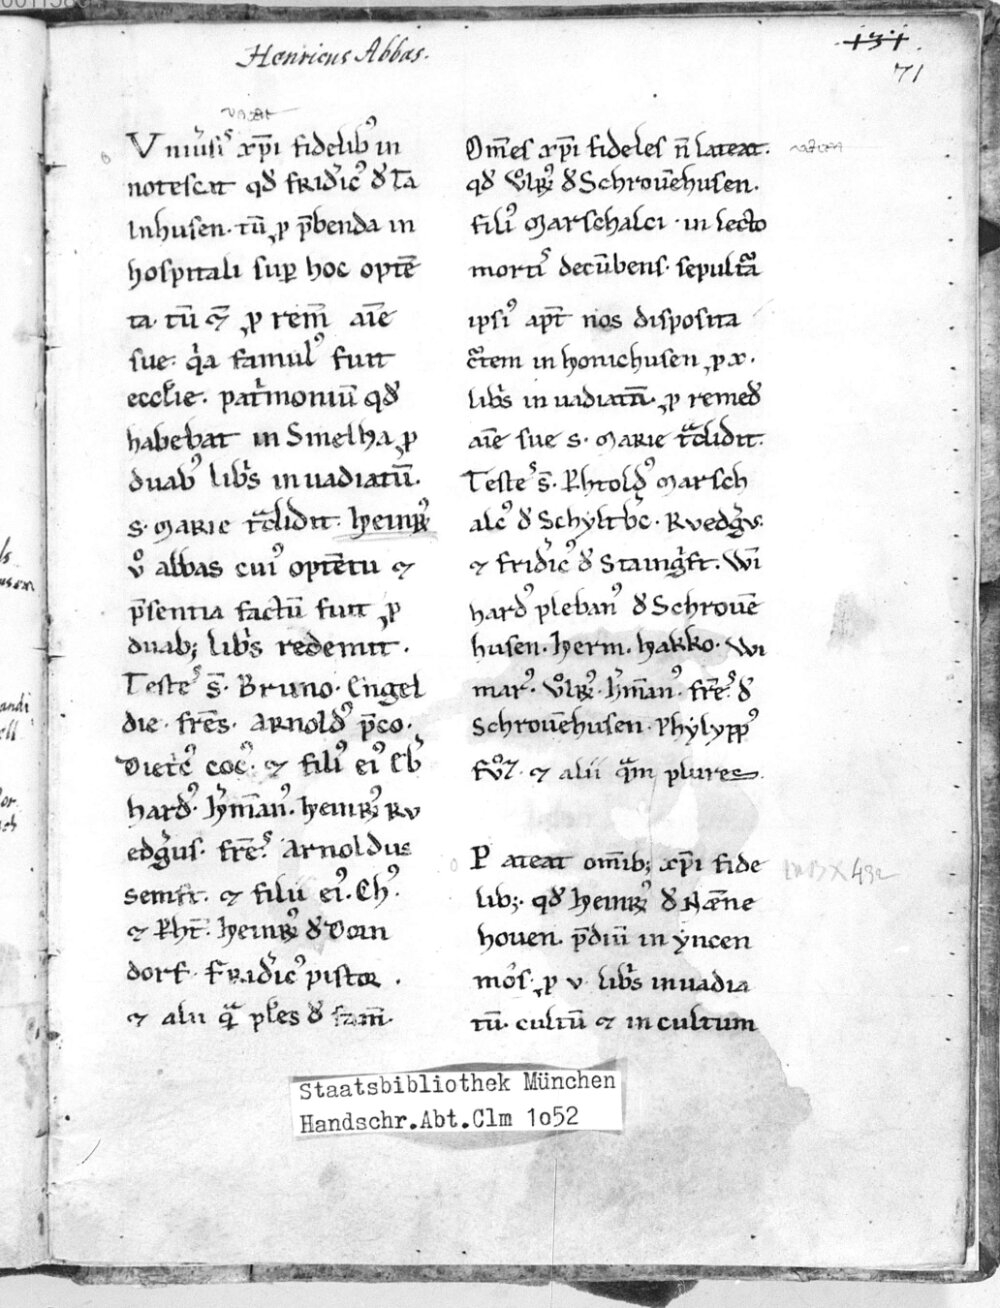 Henricus Abbas.
131
71
vacat
Vniũsis xp̄i fidelib' in
notescat qđ fridic' đ Ta
lnhusen. tū p p̄benda in
hospitali sup hoc optē
ta. tū & p rem̄ aīe
sue. qia famul' fuit
eccłie. patimoniū qđ
habebat in Smelha p
duab' libis inuadiatū.
s. MARIE t̄didit. heinR'
v° abbas cui' optētu &
p̄sentia factū fuit p
duab; libis redemit.
Teste's s̄. Bruno. Engel
die. fr̄es. Arnold' p̄co.
Dietc' coc'. & fili' ei' Eb
hard'. hȳman'. heinR' Rv
edḡus. fr̄es. Arnoldus
semft. & filii ei'. Ch'.
& Rht̄. heinR' đ Dorn
dorf. FRidic' pistor.
& alii q̄ płes đ fam̄.
Om̄es xp̄i fideles n̄ lateat.
qđ VlR' đ Schrouēhusen.
fili' Marschalci. in lecto
mortis decūbens. sepultā
ipsi' apt̄ nos disposita
c̄tem in honichusen p x.
libis inuadiatū. p remeđ
aīe sue s. MARIE t̄didit.
Teste's s̄. Rhtold' Marsch
alc' đ Schyltbc. Rvedgv.
& fridic' đ Staingft. Wi
hard' pleban' đ Schrouē
husen. herm. hakko. Wi
mar'. VlR'. hm̄an'. fr̄es đ
Schrouēhusen. Phylypp'
& alii q̄m plures.
Pateat om̄ib; xp̄i fide
lib;. qđ heinR' đ Hæne
houen. p̄diū in yncen
mos. p v. libis inuadia
tū. cultū & incultum
Staatsbibliothek München
Handschr.Abt.Clm 1o52